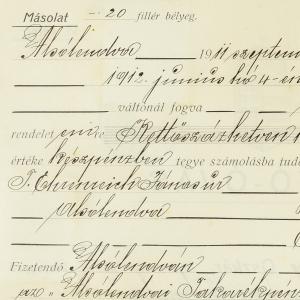 Másolat 20 fillér bélyeg.
Alsólendva 1911 szeptem
1912. junius hó 4-én
váltónál fogva
rendelet Kettőszázhetven
értéke készpénzben tegye számolásba tud
T. Ehrenreich János úr
Alsólendva
Fizetendő Alsólendván
az „Alsólendvai Takarékpén